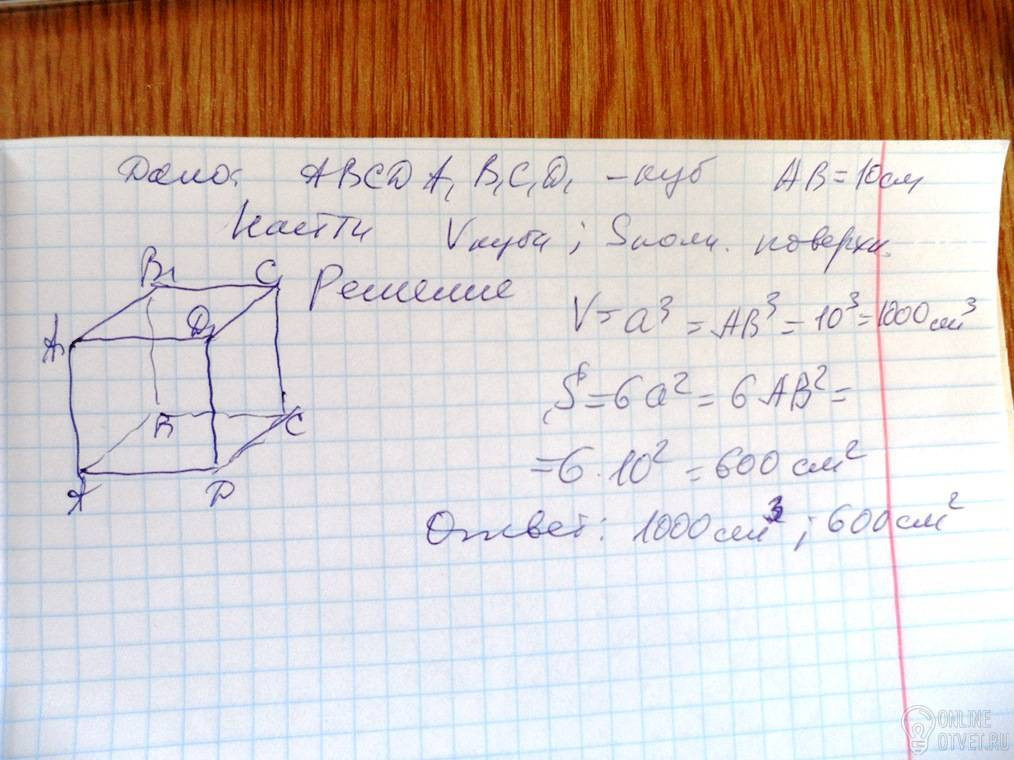 Дано: ABCDA₁B₁C₁D₁ - куб AB = 10см
Найти Vкуба; Sполн. поверхн.
Решение
B₁ C₁
A₁ D₁
V = a³ = AB³ = 10³ = 1000 см³
S = 6a² = 6AB² =
B C
= 6 · 10² = 600 см²
A D
Ответ: 1000 см³; 600 см²
ONLINE
OTVET.RU